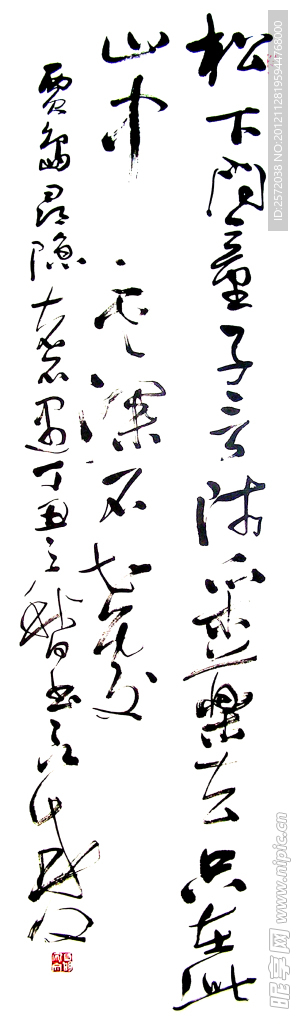 松下问童子言师采药去只在此
山中云深不知处
贾岛寻隐者不遇丁丑之秋月书
ID:2572038 NO:20121128195944768000
昵享网 www.nipic.cn